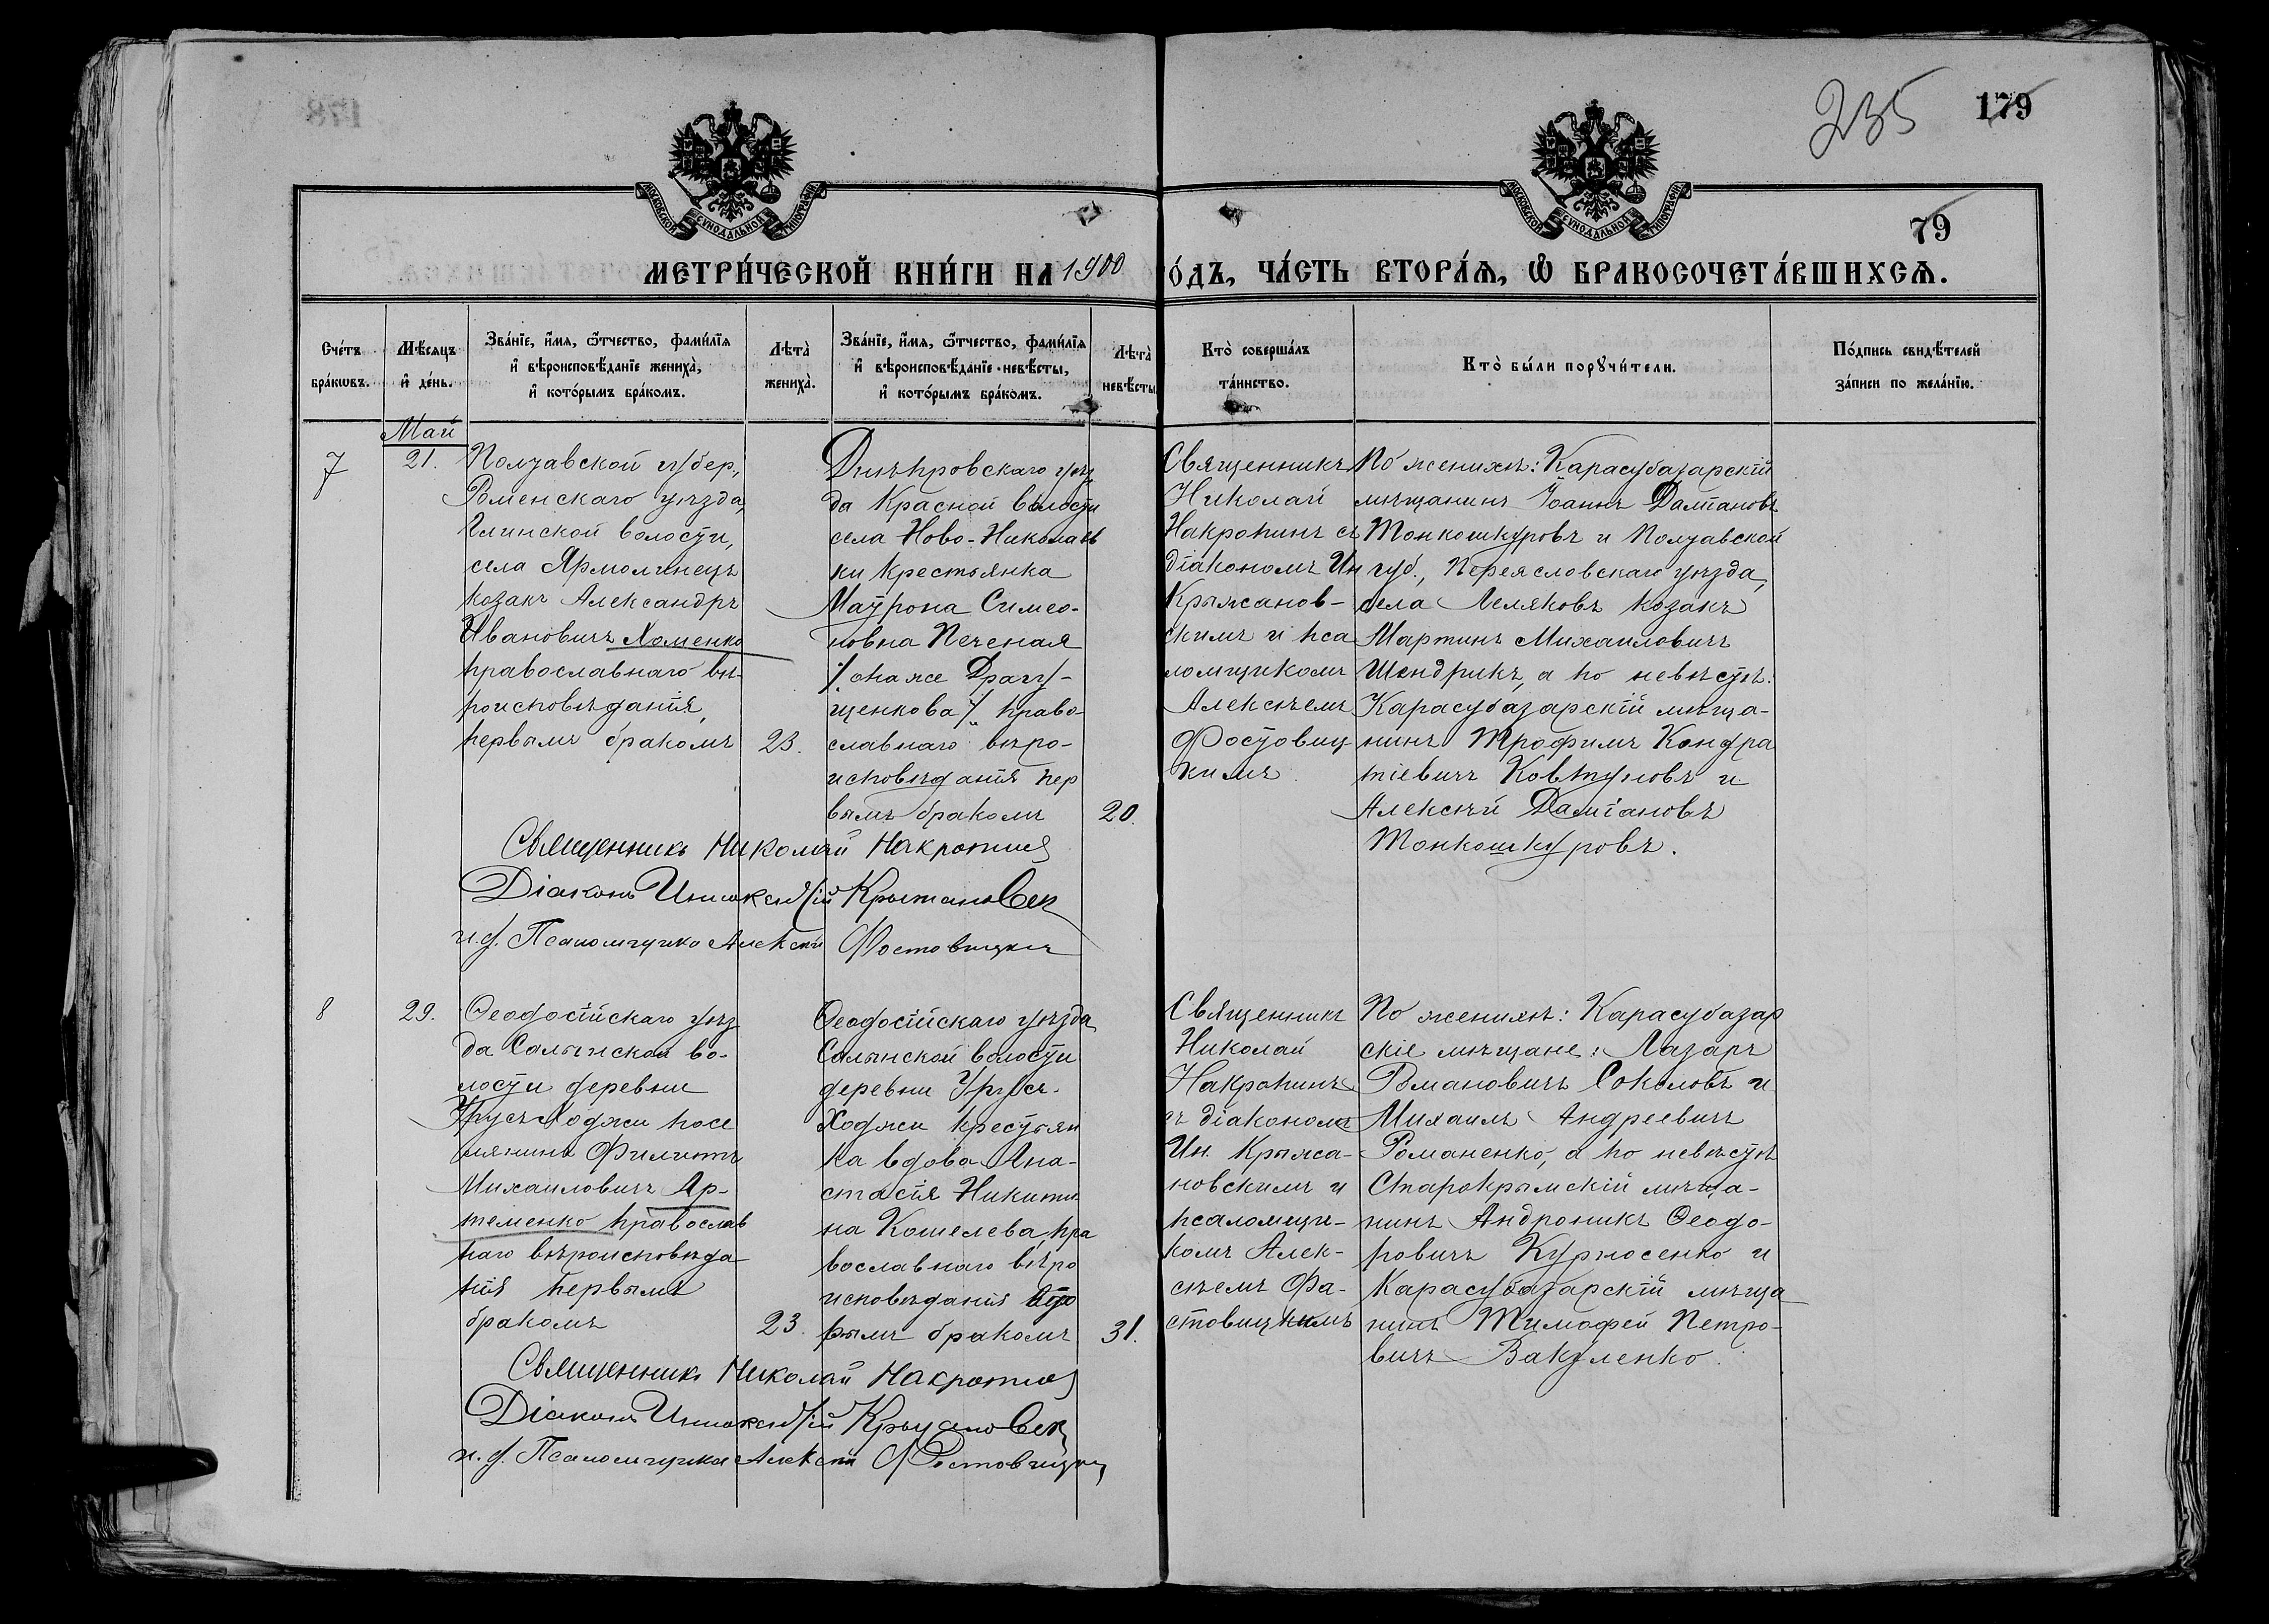 235
179
79
МОСКОВСКОЙ СУНОДАЛЬНОЙ ТИПОГРАФІИ
МОСКОВСКОЙ СУНОДАЛЬНОЙ ТИПОГРАФІИ
МЕТРИ́ЧЕСКОЙ КНИ́ГИ НА 1900
О́ДЪ, ЧА́СТЬ ВТОРА́Ѧ, Ѡ҆ БРАКОСОЧЕТА́ВШИХСѦ.
Сче́тъ бра́кѡвъ.
Мѣ́сяцъ и҆ де́нь.
Зва́нїе, и҆́мѧ, ѻ҆́тчество, фами́лїѧ
и҆ вѣроисповѣ́данїе жениха̀,
и҆ кото́рымъ бра́комъ.
Лѣта̀ жениха̀.
Зва́нїе, и҆́мѧ, ѻ҆́тчество, фами́лїѧ
и҆ вѣроисповѣ́данїе невѣ́сты,
и҆ кото́рымъ бра́комъ.
Лѣта̀ невѣ́сты
Кто̀ соверша́лъ
та́инство.
Кто̀ бы́ли порꙋчи́тели.
По́дпись свидѣ́телей
за́писи по жела́нїю.
Май
7
21.
Полтавской губер.,
Роменскаго уѣзда,
Глинской волости,
села Ярмолинецъ
козакъ Александръ
Ивановичъ Хоменко
православнаго вѣ-
роисповѣданія,
первымъ бракомъ
23.
Днѣпровскаго уѣз
да Красной волости
села Ново-Николаев
ки крестьянка
Маѵрона Симео-
новна Печеная
/. она же Драгу-
щенкова ./ право-
славнаго вѣро-
исповѣданія пер
вымъ бракомъ
20.
Священникъ
Николай
Накропинъ съ
діакономъ Ин
Крыжанов-
скимъ и пса
ломщикомъ
Алексѣемъ
Фостовиц
кимъ.
По женихѣ: Карасубазарскій
мѣщанинъ Іоаннъ Даміановъ
Тонкошкуровъ и Полтавской
губ., Переясловскаго уѣзда,
села Леляковъ козакъ
Мартинъ Михаиловичъ
Шендрикъ, а по невѣстѣ:
Карасубазарскій мѣща-
нинъ Трофимъ Кондра
тіевичъ Ковтуновъ и
Алексѣй Даміановъ
Тонкошкуровъ.
Священникъ Николай Накропинъ
Діаконъ Иннокентій Крыжановск
и.д. Псаломщика Алексѣй Фостовицкій
8
29.
Ѳеодосійскаго уѣз
да Салынской во-
лости деревни
Урусъ Ходжи посе
лянинъ Филиппъ
Михаиловичъ Ар-
теменко православ
наго вѣроисповѣда
нія первымъ
бракомъ
23.
Ѳеодосійскаго уѣзда
Салынской волости
деревни Урусъ-
Ходжи крестьян
ка вдова Ана-
стасія Никити
на Кошелева, пра
вославнаго вѣро
исповѣданія вто
рымъ бракомъ
31.
Священникъ
Николай
Накропинъ
съ діакономъ
Ин. Крыжа-
новскимъ и
псаломщи-
комъ Алек-
сѣемъ Фа-
стовицкимъ
По женихѣ: Карасубазар
скіе мѣщане: Лазарь
Романовичъ Соколовъ и
Михаилъ Андреевичъ
Романенко, а по невѣстѣ
Старокрымскій мѣща-
нинъ Андроникъ Ѳеодо-
ровичъ Курносенко и
Карасубазарскій мѣща
нинъ Тимофей Петро-
вичъ Вакуленко.
Священникъ Николай Накропинъ
Діаконъ Иннокентій Крыжановск
и.д. Псаломщика Алексѣй Фостовицкій